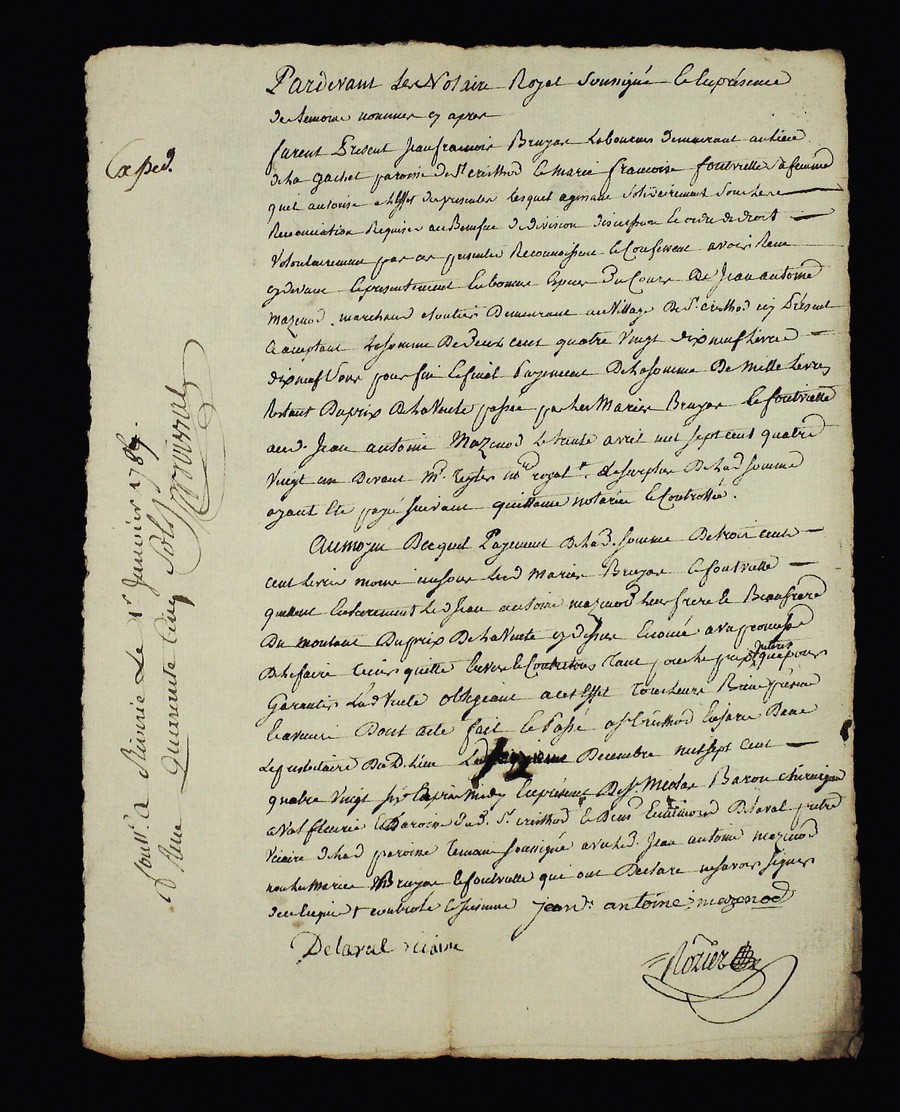 Pardevant Les Notaire Royal Soussigné Et Enpresence
de temoins nommes cy apres
Exped.
furent Present Jean francois Bruyas Laboureur demeurant au Lieu
de La gachet paroisse de St. cristhod Et marie francoise foutvielle sa femme
quil autorise a Leffet des presentes Lesquel agissant Solidairement Sous Les
Renonciation Requises au Benefice de division discussion Et ordre de droit
Volontairement par ces presentes Reconnoissent Et Confessent avoir Recu
cy devant Et presentement En bonnes Especes du Cours De Jean antoine
Mazenod marchand Demeurant au Village De St. cristhod icy Présent
acceptant La Somme De deux cent quatre Vingt dix neuf Livres
dix neuf Sous pour fin Et final Payement De La Somme De Mille Livres
Restant Du prix De La Vente passée par Les Mariés Bruyas Et foutvielle
aud. Jean antoine Mazenod Le trente avril mil Sept cent quatre
Vingt un Devant Me. royal Le Surplus De Lad Somme
ayant Eté payé Suivant quittance notariée Et Controllée.
Au moyen Dequel Payement De Lad. Somme De trois cents
cent Livres moins un Sou Lesd Mariés Bruyas Et foutvielle
quittent Entierement Led Jean antoine mazenod Leur frere Et Beaufrere
Du montant Du prix De La Vente cy dessus Enoncée avec promesse
De Le faire tenir quitte Envers Et Contre tous tant pour Le prix que pour
Garantir Lad Vente obligeant a cet Effet tous Leurs Biens présens
Et avenir Dont acte fait Et Passé a St. Cristhod
Du D. Lieu Le Decembre mil Sept cent
quatre Vingt Enpresence De Sr. Nicolas Baron chirurgien
a Valfleurie Paroisse dud. St. cristhod Et De Laval pretre
Vicaire de Lad paroisse temoins Soussignés avec Led. Jean antoine mazenod
non Les Mariés Bruyas Et foutvielle qui ont Declaré ne Savoir Signer
de ce Enquis Jean antoine mazenod
Delaval vicaire
Rozier
A Le 1r. Janvier 1787.
Recu Quarante Cinq Sols